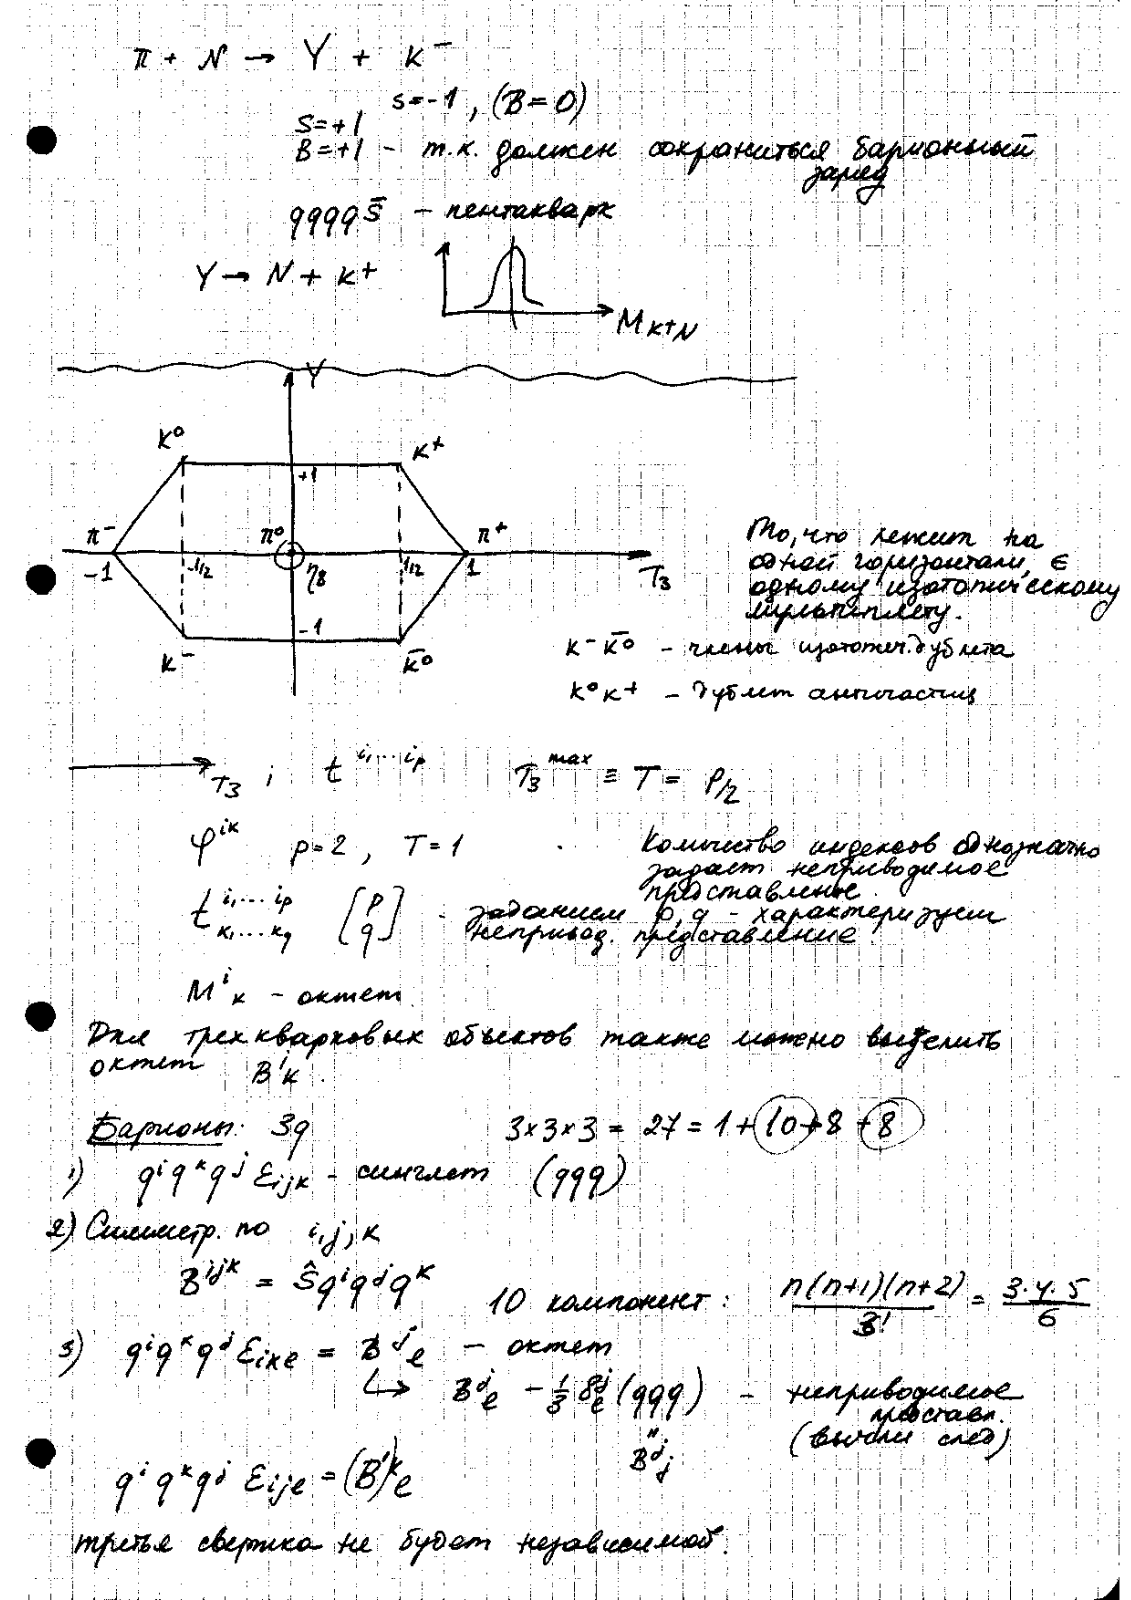 π + N → Y + K⁻
s=-1, (B=0)
S=+1
B=+1 - т.к. должен сохраниться барионный
заряд
qqqq s̄ - пентакварк
Y → N + K⁺
M K⁺N
Y
K⁰ K⁺
+1
π⁻ π⁰ π⁺
-1 -1/2 η₈ 1/2 1 T₃
-1
K⁻ K̄⁰
То, что лежит на
одной горизонтали, ∈
одному изотопическому
мультиплету.
K⁻ K̄⁰ - члены изотопич. дублета
K⁰ K⁺ - дублет античастиц
T₃ ; t^{i₁...i_p} T₃^{max} ≡ T = p/2
φ^{ik} p=2, T=1
Количество индексов однозначно
задает неприводимое
представление.
t^{i₁...i_p}_{k₁...k_q} [p q] - заданием p,q - характеризуем
непривод. представление.
M^i_k - октет.
Для трехкварковых объектов также можно выделить
октет B^i_k.
Барионы: 3q 3×3×3 = 27 = 1+10+8+8
1) q^i q^k q^j ε_{ijk} - синглет (qqq)
2) Симметр. по i,j,k
B^{ijk} = Ŝ q^i q^j q^k
10 компонент: n(n+1)(n+2)/3! = 3·4·5/6
3) q^i q^k q^j ε_{ike} = B^j_e - октет
↳ B^j_e - 1/3 δ^j_e (qqq) - неприводимое
представл.
(вычли след)
"
B^j_j
q^i q^k q^j ε_{ije} = (B')^k_e
третья свертка не будет независимой.